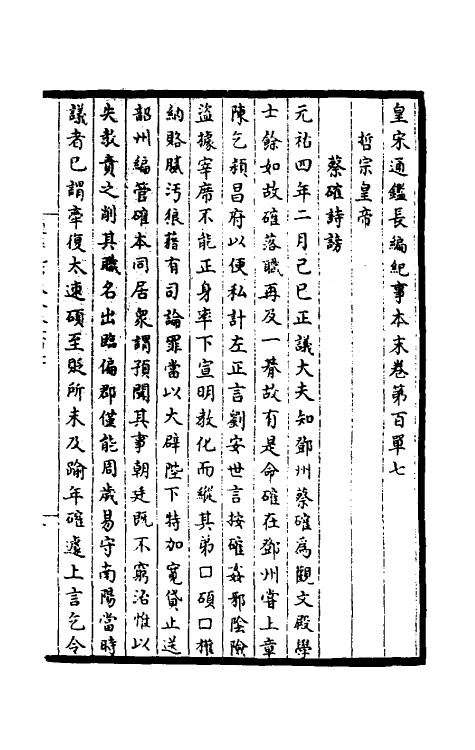 皇宋通鑑長編紀事本末卷第百單七
哲宗皇帝
蔡確詩謗
元祐四年二月己巳正議大夫知鄧州蔡確為觀文殿學
士餘如故確落職再及一朞故有是命確在鄧州嘗上章
陳乞潁昌府以便私計左正言劉安世言按確姦邪陰險
盜據宰席不能正身率下宣明敎化而縱其弟口碩口搉
納賂贓污狼藉有司論罪當以大辟陛下特加寬貸止送
韶州編管確本同居衆謂預聞其事朝廷既不窮治惟以
失敎責之削其職名出臨偏郡僅能周歲易守南陽當時
議者已謂牽復太速碩至貶所未及踰年確遽上言乞令